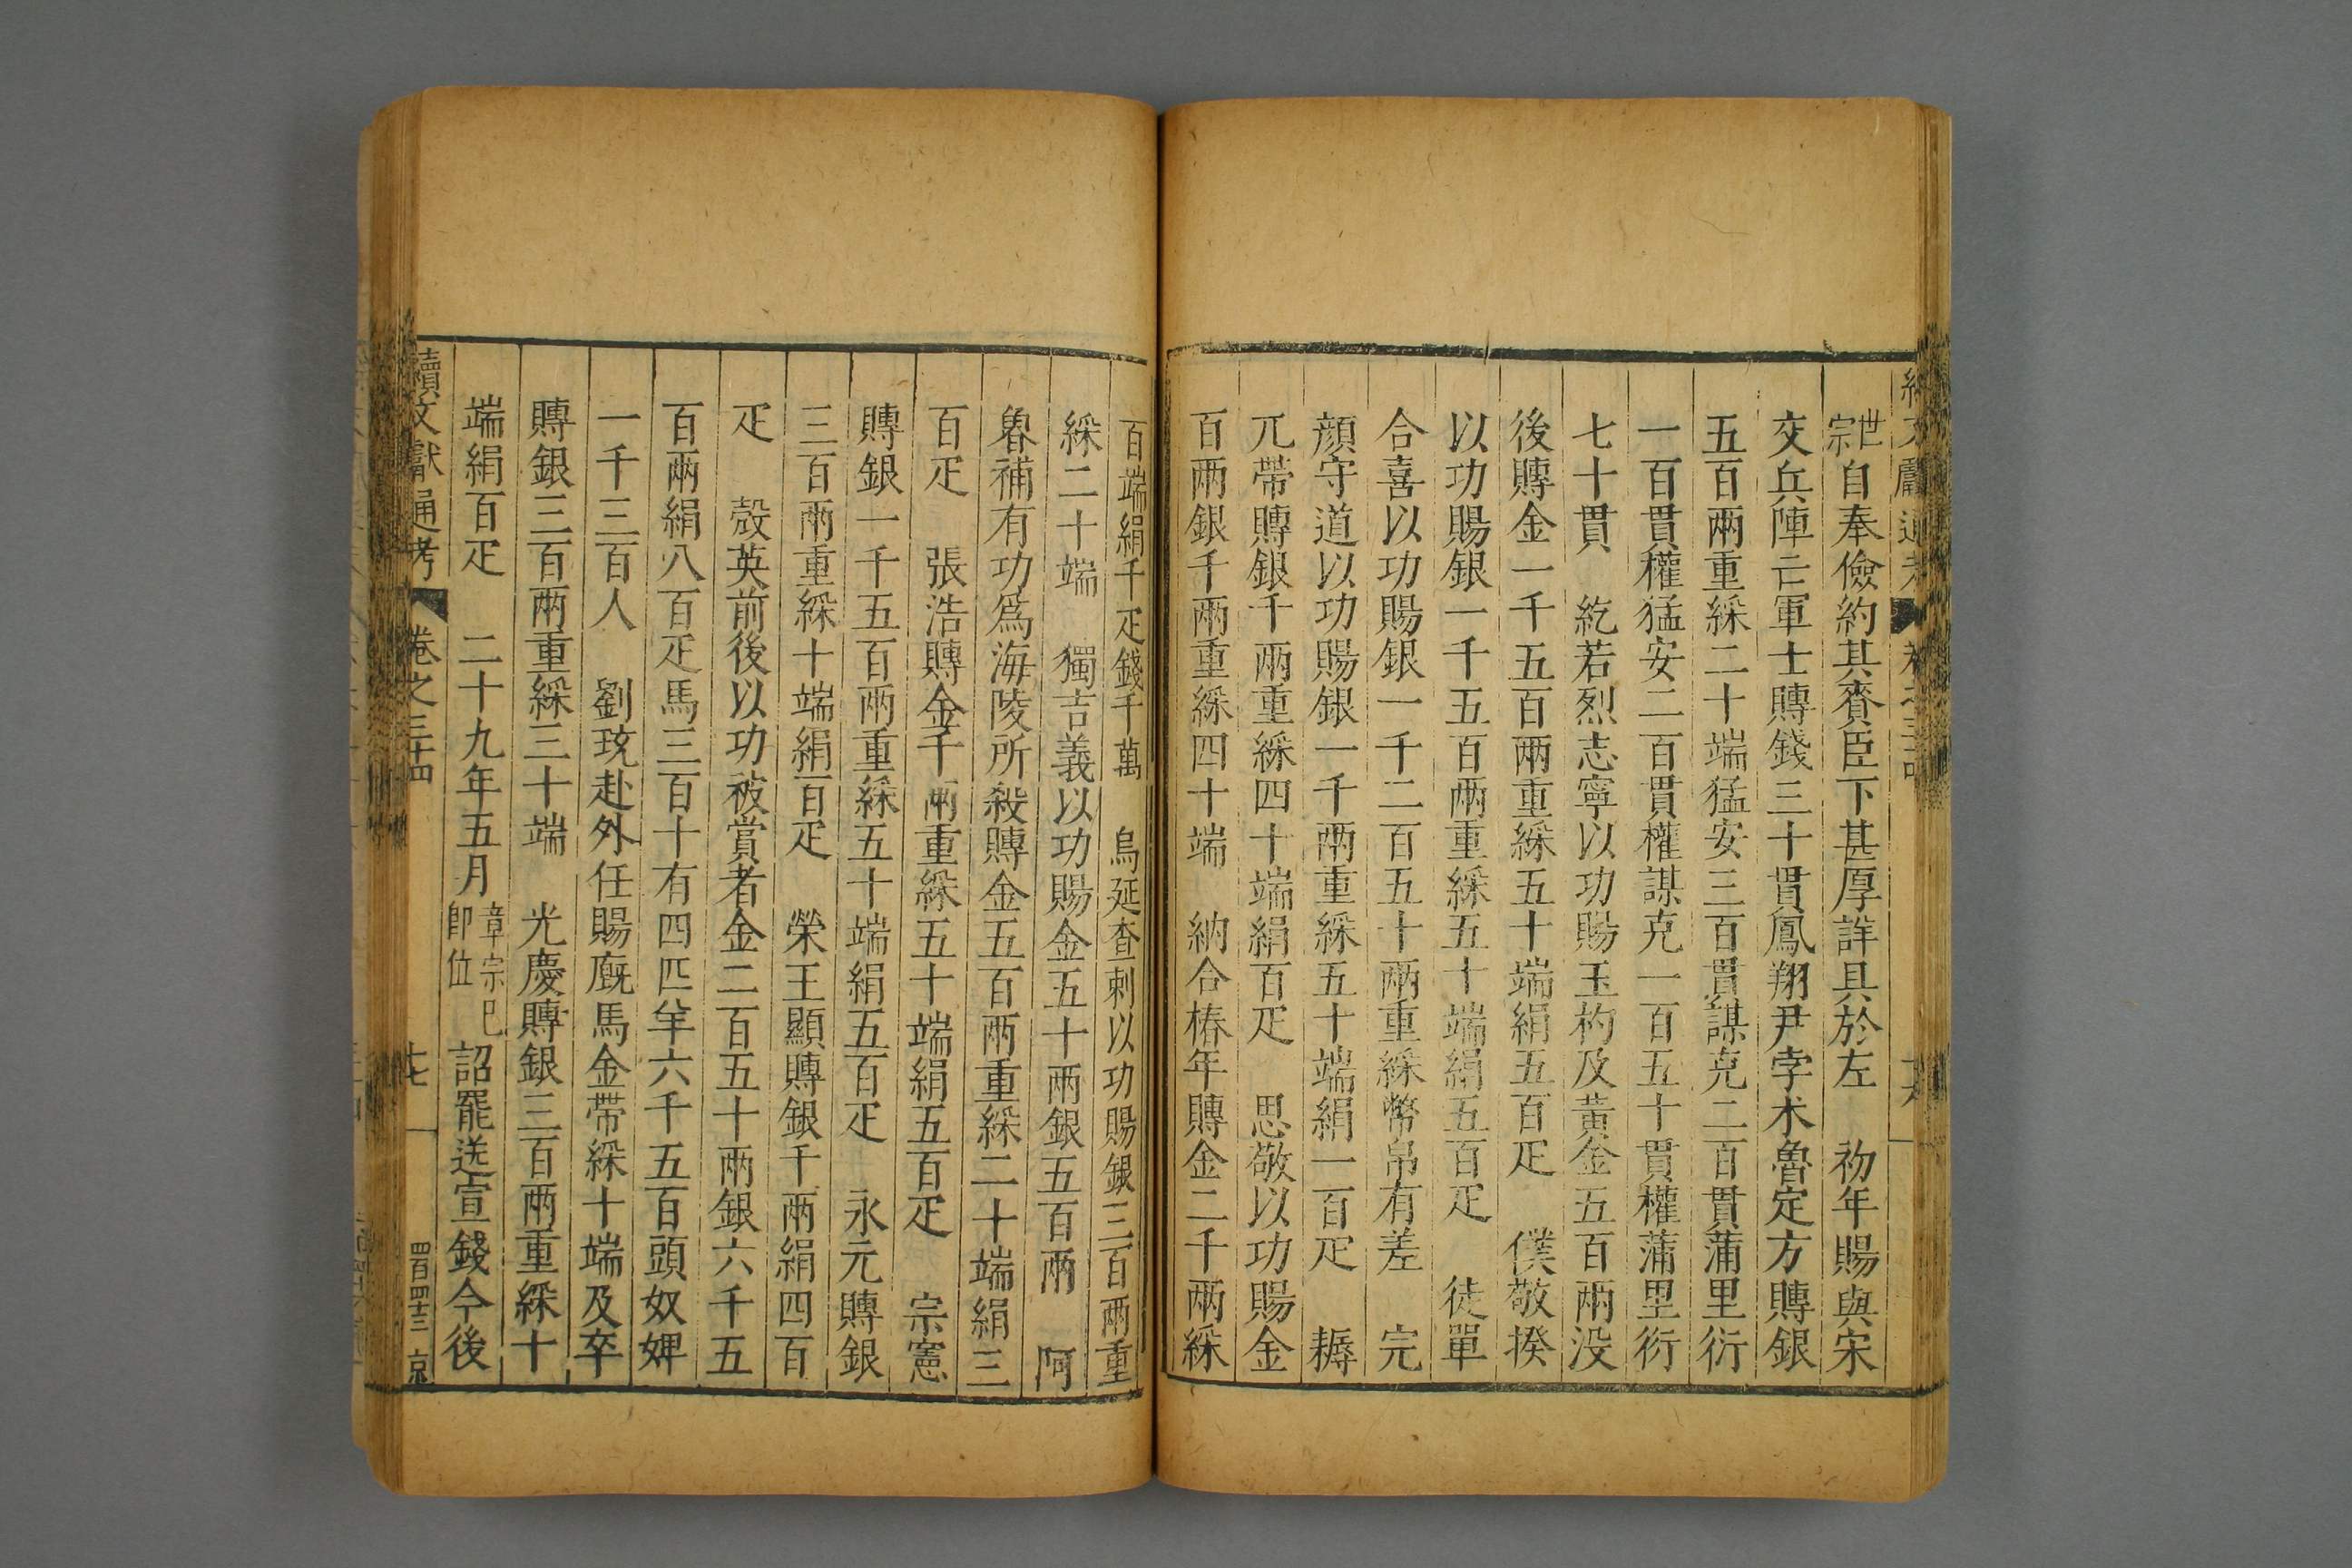 世宗自奉儉約其賚臣下甚厚詳具於左　初年賜與宋
交兵陣亡軍士賻錢三十貫鳳翔尹孛术魯定方賻銀
五百兩重綵二十端猛安三百貫謀克二百貫蒲里衍
一百貫權猛安二百貫權謀克一百五十貫權蒲里衍
七十貫　紇若烈志寧以功賜玉杓及黃金五百兩没
後賻金一千五百兩重綵五十端絹五百疋　僕敬揆
以功賜銀一千五百兩重綵五十端絹五百疋　徒單
合喜以功賜銀一千二百五十兩重綵幣帛有差　完
顔守道以功賜銀一千兩重綵五十端絹一百疋　耨
兀帶賻銀千兩重綵四十端絹百疋　思敬以功賜金
百兩銀千兩重綵四十端　納合椿年賻金二千兩綵
百端絹千疋錢千萬　烏延查剌以功賜銀三百兩重
綵二十端　獨吉義以功賜金五十兩銀五百兩　阿
魯補有功爲海陵所殺賻金五百兩重綵二十端絹三
百疋　張浩賻金千兩重綵五十端絹五百疋　宗憲
賻銀一千五百兩重綵五十端絹五百疋　永元賻銀
三百兩重綵十端絹百疋　榮王顯賻銀千兩絹四百
疋　㱿英前後以功被賞者金二百五十兩銀六千五
百兩絹八百疋馬三百十有四匹羊六千五百頭奴婢
一千三百人　劉玫赴外任賜廐馬金帶綵十端及卒
賻銀三百兩重綵三十端　光慶賻銀三百兩重綵十
端絹百疋　二十九年五月章宗巳即位詔罷送宣錢今後
續文獻通考　卷之三十四　十七　四百四十三　京